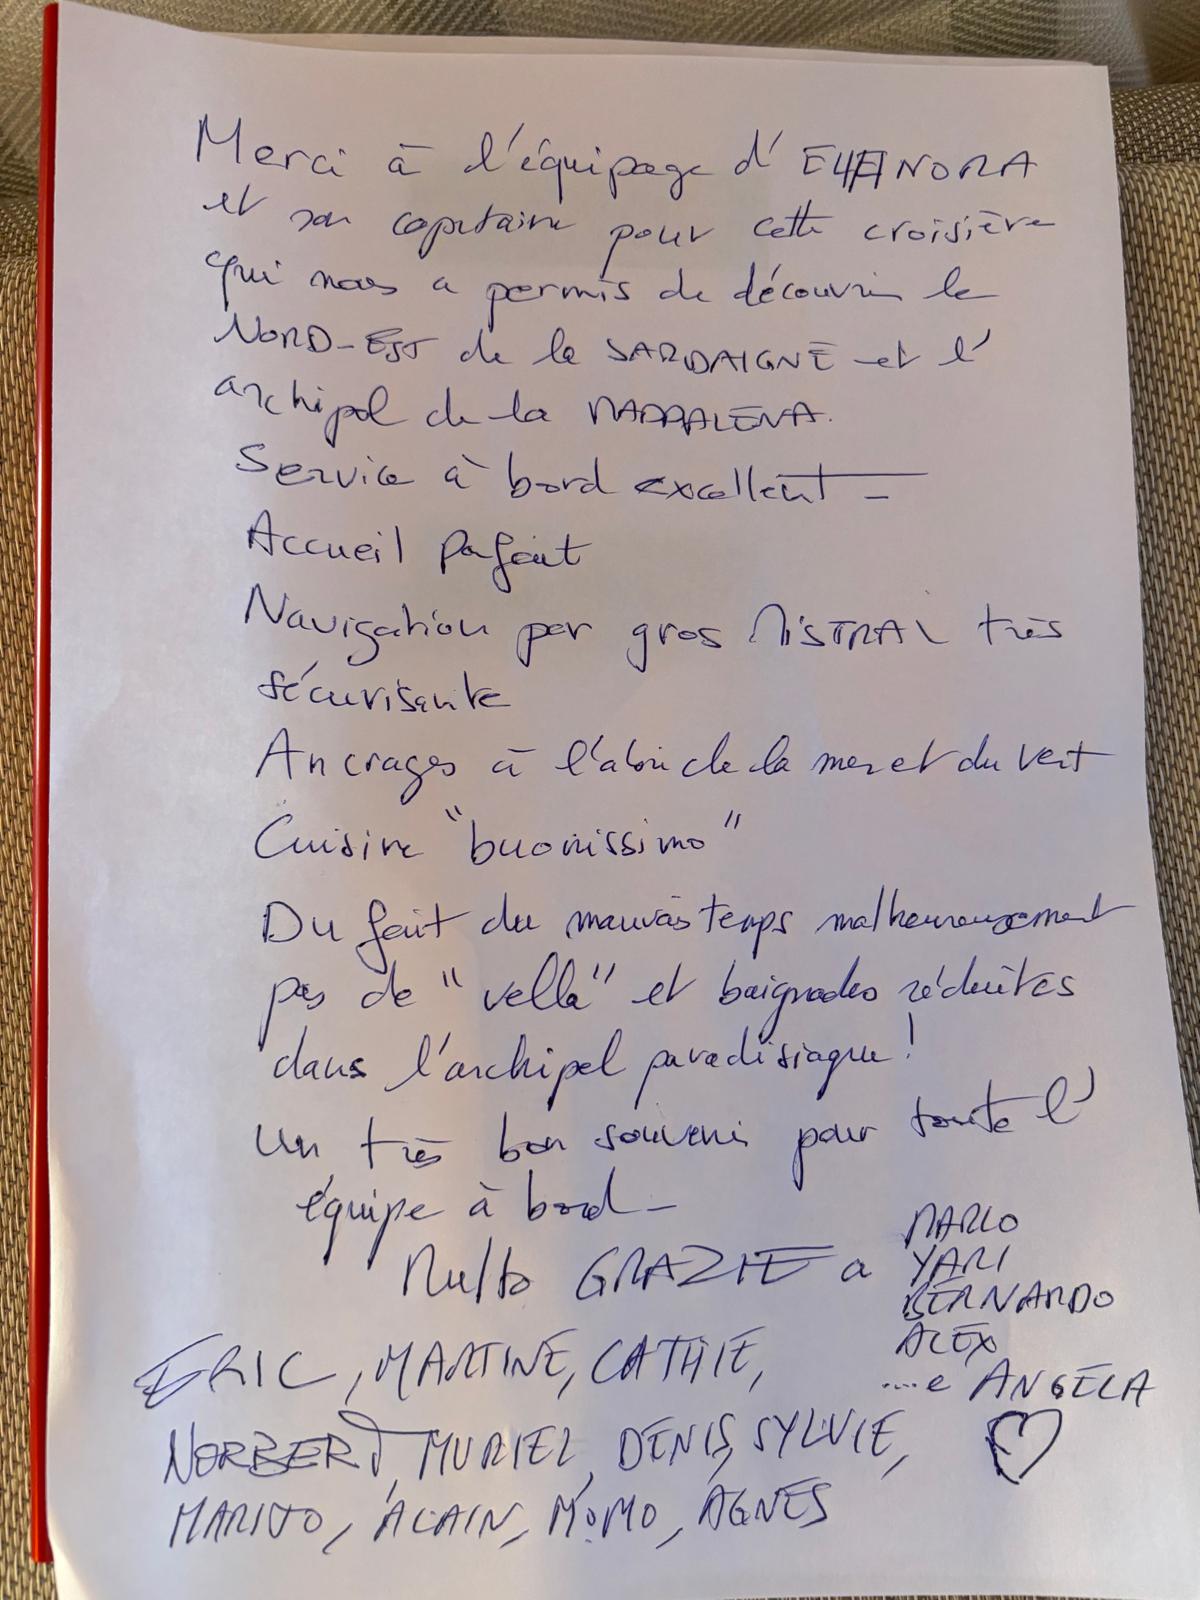 Merci à l'équipage d' ELEANORA
et son capitaine pour cette croisière
qui nous a permis de découvrir le
NORD-EST de la SARDAIGNE et l'
archipel de la MADDALENA.
Service à bord excellent -
Accueil parfait
Navigation par gros MISTRAL très
sécurisante
Ancrages à l'abri de la mer et du vent
Cuisine "buonissimo"
Du fait du mauvais temps malheureusement
pas de "vella" et baignades réduites
dans l'archipel paradisiaque !
Un très bon souvenir pour toute l'
équipe à bord -
Multo GRAZIE a MARCO
YARI
BERNARDO
ALEX
....e ANGELA
ERIC, MARTINE, CATHIE,
NORBERT, MURIEL, DENIS, SYLVIE,
ALAIN, MOMO, AGNES